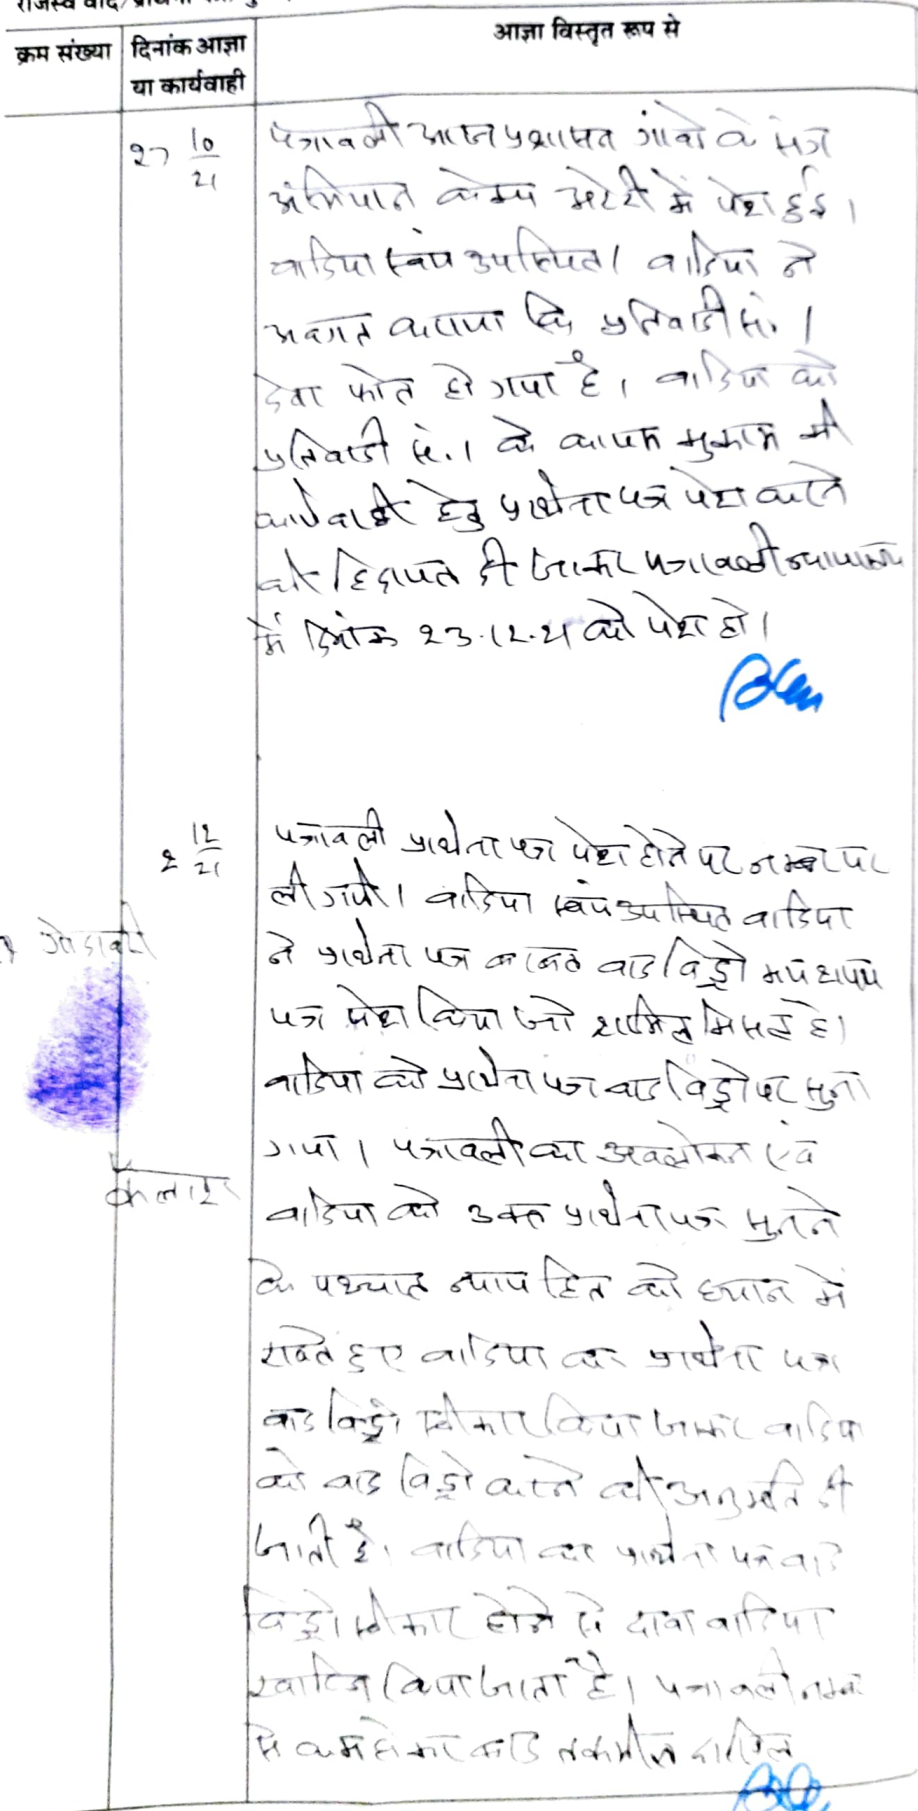 राजस्व वाद/प्रार्थना
क्रम संख्या
दिनांक आज्ञा
या कार्यवाही
आज्ञा विस्तृत रूप से
27 10/21
पत्रावली आज प्रशासन गांवो के संग
अभियान केम्प में पेश हुई।
वादिया स्वंय उपस्थित। वादिया ने
अवगत कराया कि प्रतिवादी सं. 1
देवा फोत हो गया है। वादिया को
प्रतिवादी सं. 1 के कायम मुकाम की
कार्यवाही हेतु प्रार्थना पत्र पेश करने
की हिदायत दी जाकर पत्रावली न्यायालय
में दिनांक 23.12.21 को पेश हो।
2 12/21
पत्रावली प्रार्थना पत्र पेश होने पर नम्बर पर
ली गयी। वादिया स्वंय उपस्थित वादिया
ने प्रार्थना पत्र बाबत वाद विड्रो मय शपथ
पत्र पेश किया जो शामिल मिसल है।
वादिया को प्रार्थना पत्र वाद विड्रो पर सुना
गया। पत्रावली का अवलोकन एवं
वादिया को उक्त प्रार्थना पत्र सुनने
के पश्चात न्याय हित को ध्यान में
रखते हुए वादिया का प्रार्थना पत्र
वाद विड्रो स्वीकार किया जाकर वादिया
को वाद विड्रो करने की अनुमति दी
जाती है। वादिया का प्रार्थना पत्र वाद
विड्रो स्वीकार होने से दावा वादिया
खारिज किया जाता है। पत्रावली नम्बर
से कम होकर बाद तकमील दाखिल